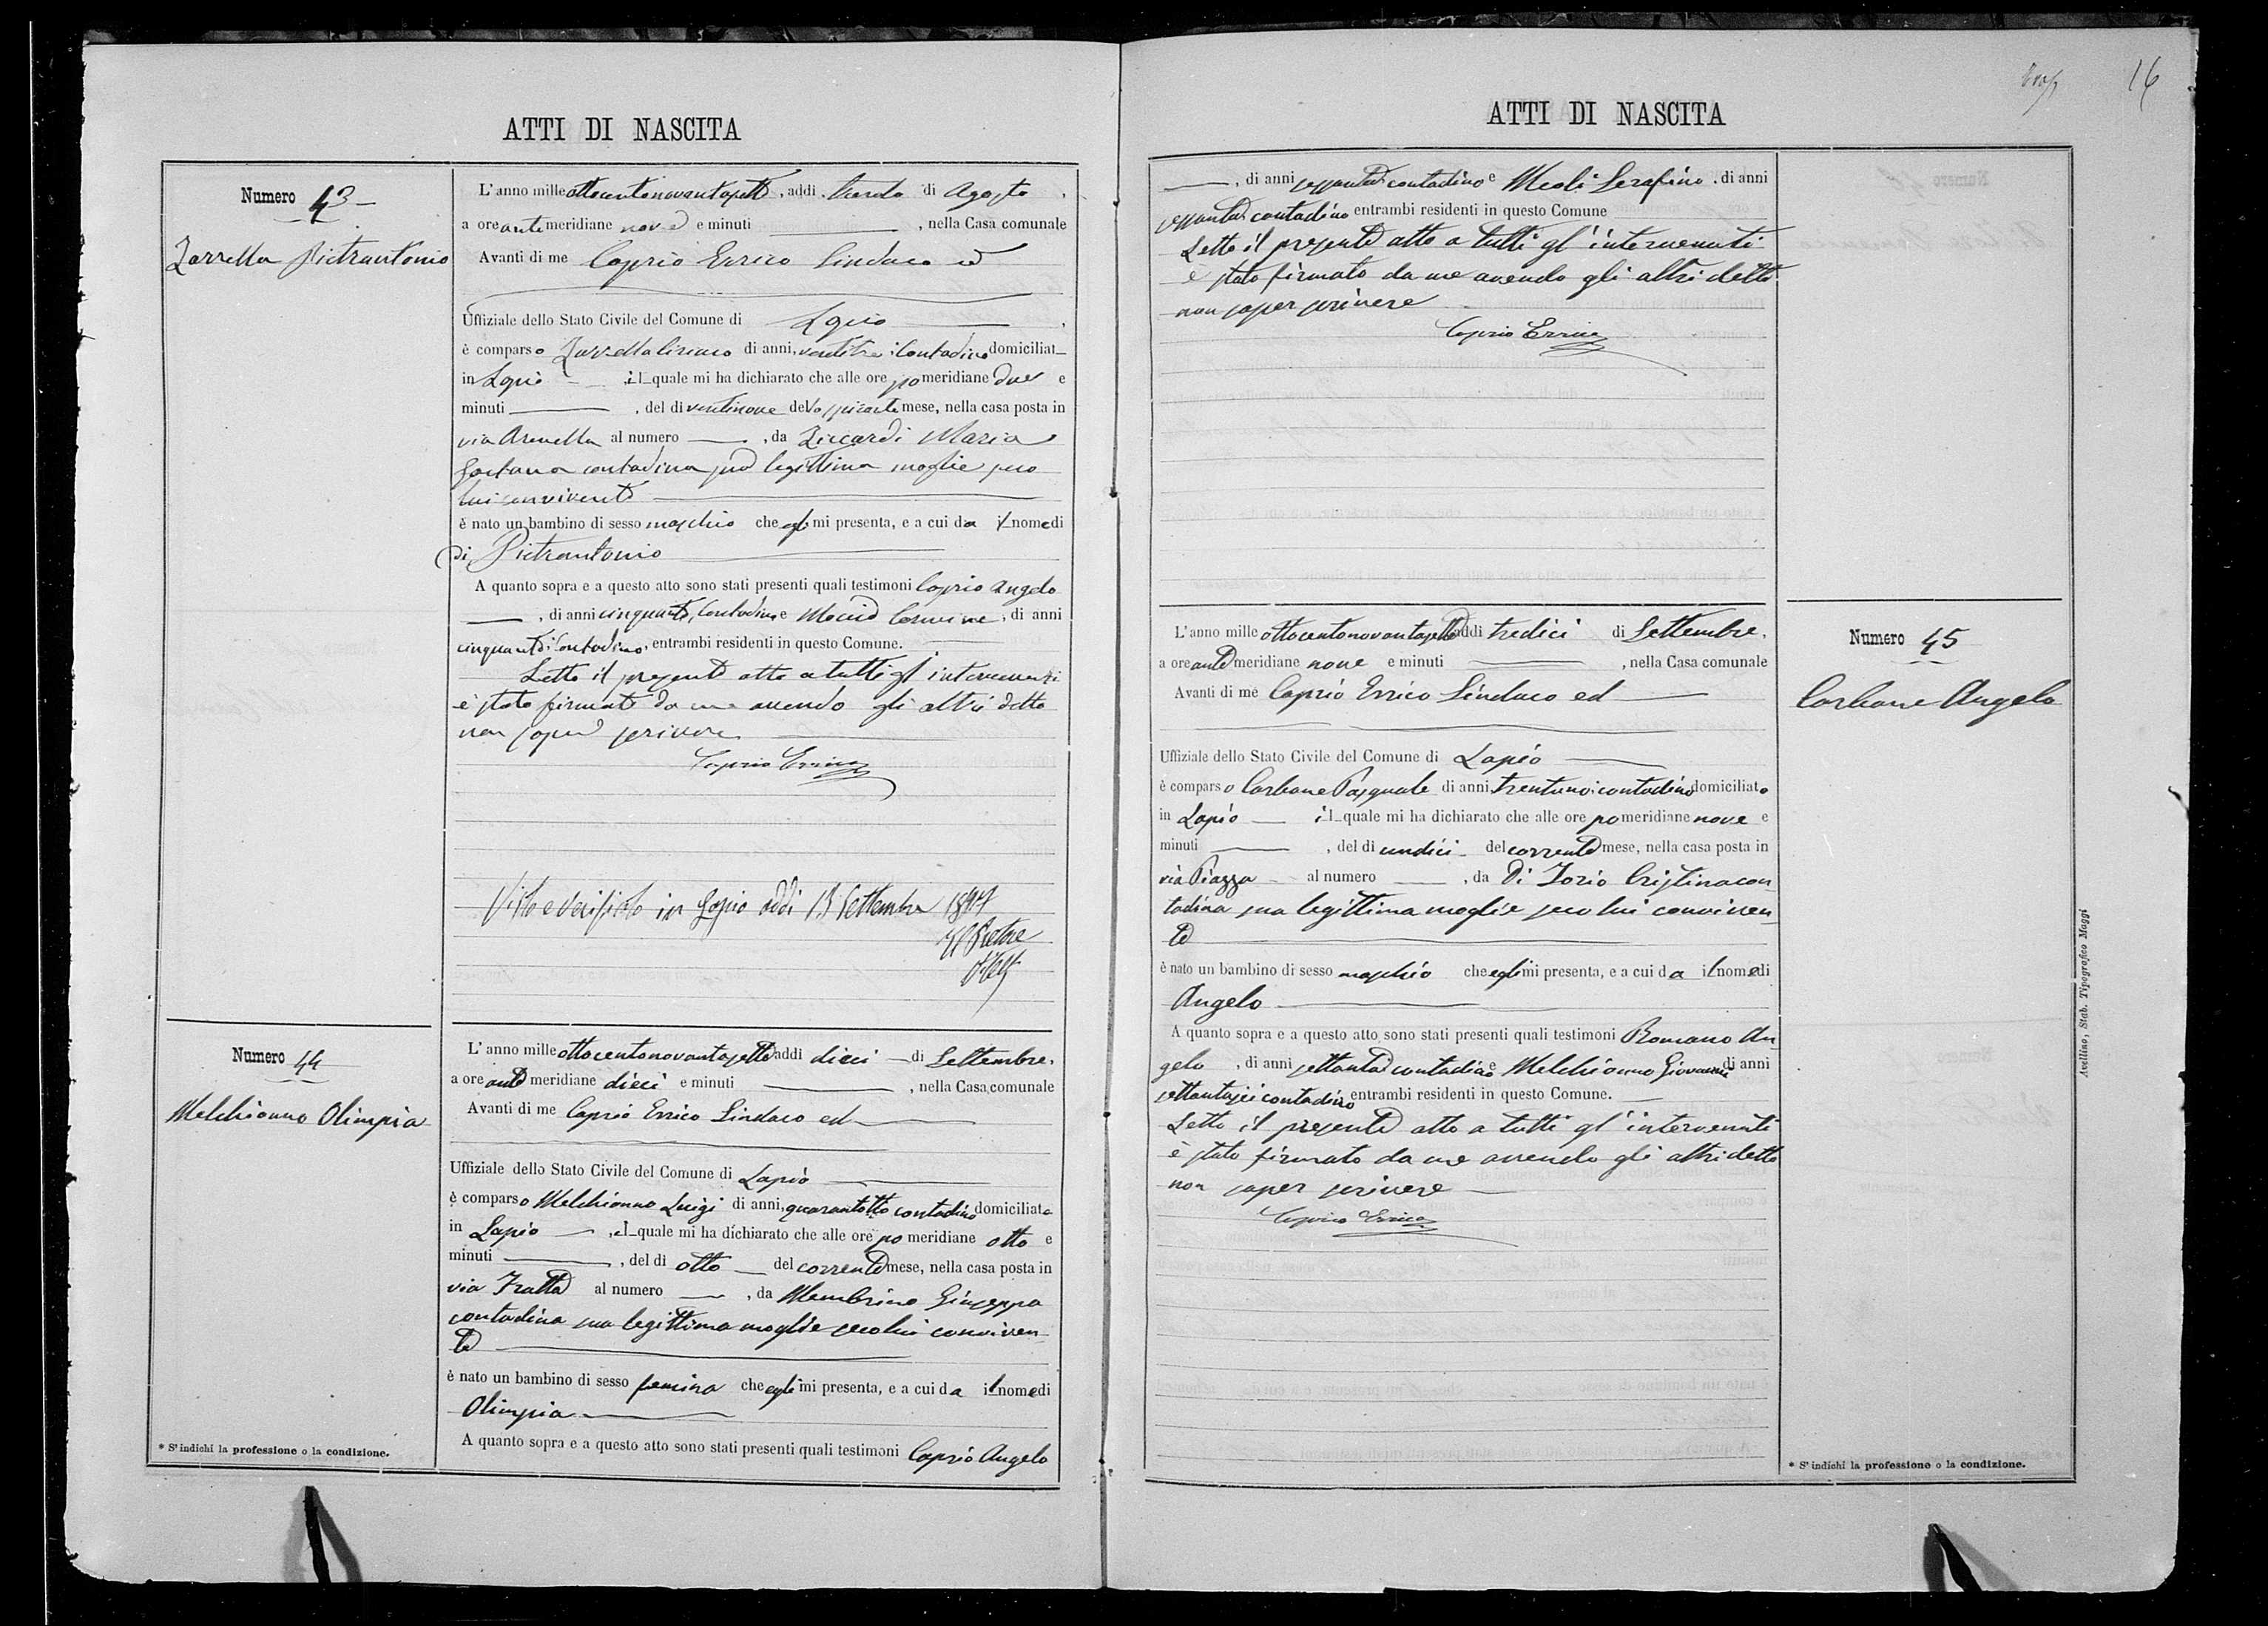 ATTI DI NASCITA
Numero 43
Zarrella Pietrantonio
L'anno milleottocentonovantasette, addi trenta di Agosto,
a ore antimeridiane nove e minuti , nella Casa comunale
Avanti di me Caprio Errico Sindaco ed
Uffiziale dello Stato Civile del Comune di Lapio
è comparso Zarrella Ciriaco di anni, ventitre, Contadino domiciliat
in Lapio il quale mi ha dichiarato che alle ore pomeridiane due e
minuti , del di ventinove dello spirante mese, nella casa posta in
via Arenella al numero , da Ziccardi Maria
Gaetana contadina sua legittima moglie seco
lui convivente
è nato un bambino di sesso maschio che egli mi presenta, e a cui da il nome di
di Pietrantonio
A quanto sopra e a questo atto sono stati presenti quali testimoni Caprio Angelo
, di anni cinquanta, Contadino e Carmine, di anni
Contadino, entrambi residenti in questo Comune.
Letto il presente atto a tutti gl'intervenuti
è stato firmato da me avendo gli altri detto
non saper scrivere
Caprio Errico
Visto e verificato in Lapio addi 13 Settembre 1897
Il Pretore
Numero 44
Melchionno Olimpia
L'anno milleottocentonovantasette addi dieci di Settembre,
a ore antemeridiane dieci e minuti , nella Casa comunale
Avanti di me Caprio Errico Sindaco ed
Uffiziale dello Stato Civile del Comune di Lapio
è comparso Melchionno Luigi di anni, quarantotto contadino domiciliato
in Lapio , il quale mi ha dichiarato che alle ore pomeridiane otto e
minuti , del di otto del corrente mese, nella casa posta in
via Tratta al numero , da Membrino Giuseppa
contadina sua legittima moglie seco lui conviven
te
è nato un bambino di sesso femina che egli mi presenta, e a cui da il nome di
Olimpia
A quanto sopra e a questo atto sono stati presenti quali testimoni Caprio Angelo
* S'indichi la professione o la condizione.
16
ATTI DI NASCITA
, di anni sessanta contadino e Meoli Serafino, di anni
sessanta contadino entrambi residenti in questo Comune
Letto il presente atto a tutti gl'intervenuti
è stato firmato da me avendo gli altri detto
non saper scrivere
Caprio Errico
Numero 45
Carbone Angelo
L'anno mille ottocentonovantasette addi tredici di Settembre,
a ore antemeridiane nove e minuti , nella Casa comunale
Avanti di me Caprio Errico Sindaco ed
Uffiziale dello Stato Civile del Comune di Lapio
è comparso Carbone Pasquale di anni, trentuno contadino domiciliato
in Lapio il quale mi ha dichiarato che alle ore pomeridiane nove e
minuti , del di undici del corrente mese, nella casa posta in
via Piazza al numero , da Di Iorio Cristina con
tadina sua legittima moglie seco lui conviven-
te
è nato un bambino di sesso maschio che egli mi presenta, e a cui da il nome di
Angelo
A quanto sopra e a questo atto sono stati presenti quali testimoni Romano An
gelo , di anni settanta contadino e Melchionno Giovanni di anni
settantasei contadino entrambi residenti in questo Comune.
Letto il presente atto a tutti gl'intervenuti
è stato firmato da me avendo gli altri detto
non saper scrivere
Caprio Errico
* S'indichi la professione o la condizione.
Avellino, Stab. Tipografico Maggi